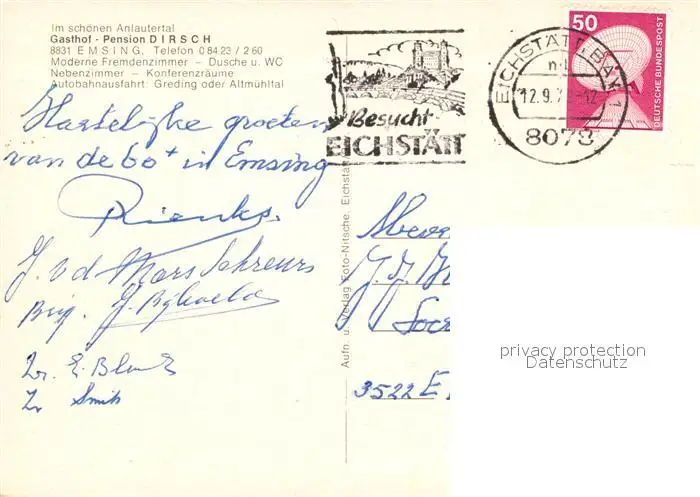 Im schönen Anlautertal
Gasthof - Pension DIRSCH
8831 EMSING, Telefon 0 84 23 / 2 60
Moderne Fremdenzimmer – Dusche u. WC
Nebenzimmer – Konferenzräume
Autobahnausfahrt: Greding oder Altmühltal
Hartelijke groeten
van de 60+ in Emsing
Rienks.
J. v d Mars Schreurs
Brig. J.
Zr. E. Blank
Zr Smit
Aufn. u. Verlag Foto-Nitsche, Eichstätt
Besucht
EICHSTÄTT
EICHSTÄTT, BAY 1
12.9.7
8078
50
DEUTSCHE BUNDESPOST
J. J.
3522 E
privacy protection
Datenschutz